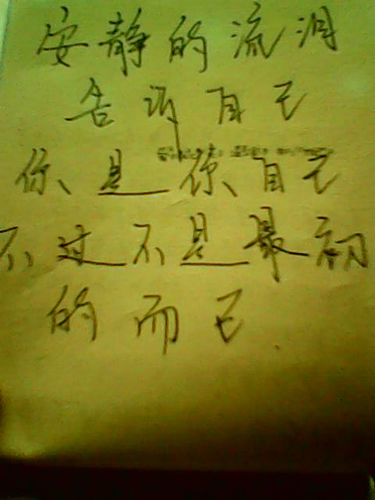 安静的流泪
告诉自己
你、是你、自己
不过不是最初
的而已.